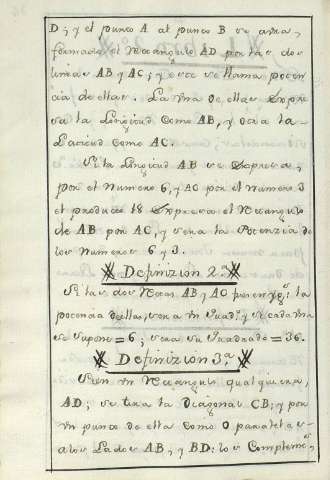 D; y el punto A al punto B se avra,
formado el Rectangulo AD por las dos
lineas AB y AC; y esta se llama poten
cia de ellas. La una de ellas Expre
sa la Longitud como AB, y otra la
Latitud como AC.
Si la Longitud AB se Expresa,
por el Numero 6, y AC por el Numero 3
el producto 18 Expresa el Rectangulo
de AB por AC, y sera la Potenzia de
los Numeros 6 y 3.
Definizion 2.a
Si las dos Rectas AB y AC fuesen yg.s la
potencia de ellas, sera un Quad.o y si cada una
se supone = 6; sera su Quadrado = 36.
Definizion 3.a
Si en un Rectangulo qualquiera,
AD; se tira la Diagonal CB; y por
un punto de ella como O paralelas
a los Lados AB, y BD: los Complem.os